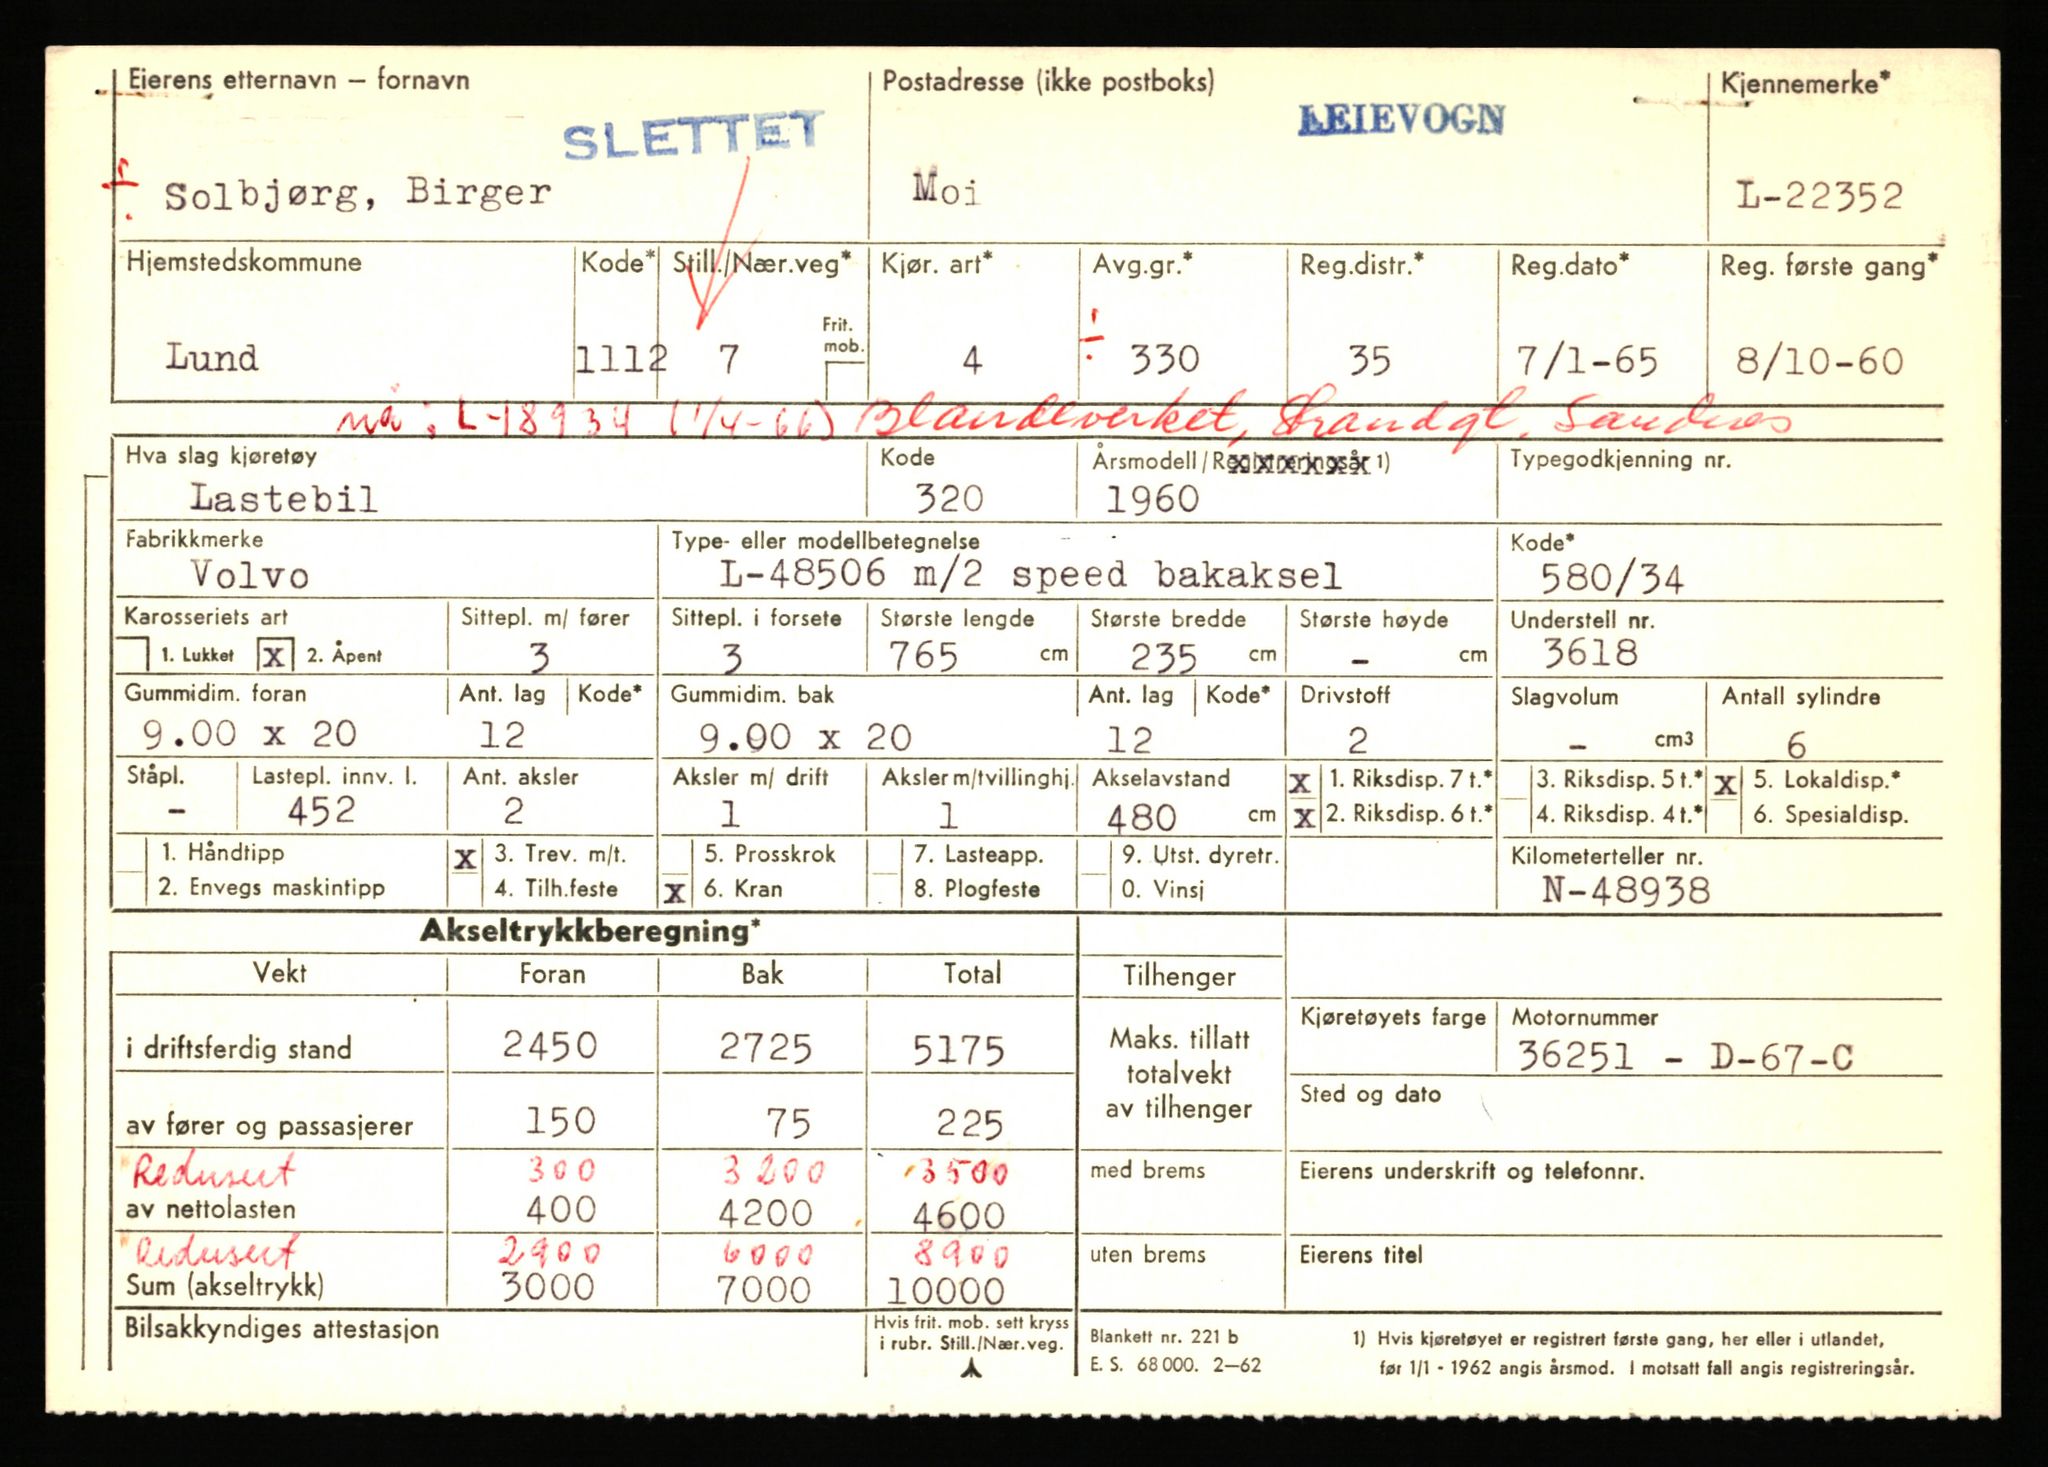 Eierens etternavn – fornavn Postadresse (ikke postboks) Kjennemerke*
SLETTET LEIEVOGN
Solbjørg, Birger Moi L-22352
Hjemstedskommune Kode* Still./Nær.veg* Kjør. art* Avg.gr.* Reg.distr.* Reg.dato* Reg. første gang*
Frit. mob.
Lund 1112 7 4 330 35 7/1-65 8/10-60
nå: L-18934 (1/4-66) Blandeverket, Strandgt. Sandnes
Hva slag kjøretøy Kode Årsmodell/Registreringsår 1) Typegodkjenning nr.
Lastebil 320 1960
Fabrikkmerke Type- eller modellbetegnelse Kode*
Volvo L-48506 m/2 speed bakaksel 580/34
Karosseriets art Sittepl. m/ fører Sittepl. i forsete Største lengde Største bredde Største høyde Understell nr.
1. Lukket x 2. Åpent 3 3 765 cm 235 cm - cm 3618
Gummidim. foran Ant. lag Kode* Gummidim. bak Ant. lag Kode* Drivstoff Slagvolum Antall sylindre
9.00 x 20 12 9.00 x 20 12 2 - cm3 6
Ståpl. Lastepl. innv. l. Ant. aksler Aksler m/ drift Aksler m/tvillinghj. Akselavstand x 1. Riksdisp. 7 t.* 3. Riksdisp. 5 t.* x 5. Lokaldisp.*
- 452 2 1 1 480 cm x 2. Riksdisp. 6 t.* 4. Riksdisp. 4 t.* 6. Spesialdisp.
1. Håndtipp x 3. Trev. m/t. 5. Prosskrok 7. Lasteapp. 9. Utst. dyretr. Kilometerteller nr.
2. Envegs maskintipp 4. Tilh.feste x 6. Kran 8. Plogfeste 0. Vinsj N-48938
Akseltrykkberegning*
Vekt Foran Bak Total Tilhenger
Kjøretøyets farge Motornummer
i driftsferdig stand 2450 2725 5175 Maks. tillatt totalvekt av tilhenger 36251 - D-67-C
Sted og dato
av fører og passasjerer 150 75 225
Redusert 300 3200 3500 med brems Eierens underskrift og telefonnr.
av nettolasten 400 4200 4600
Redusert 2900 6000 8900 uten brems Eierens titel
Sum (akseltrykk) 3000 7000 10000
Bilsakkyndiges attestasjon Hvis frit. mob. sett kryss i rubr. Still./Nær.veg.
Blankett nr. 221 b 1) Hvis kjøretøyet er registrert første gang, her eller i utlandet,
E. S. 68 000. 2–62 før 1/1 - 1962 angis årsmod. I motsatt fall angis registreringsår.